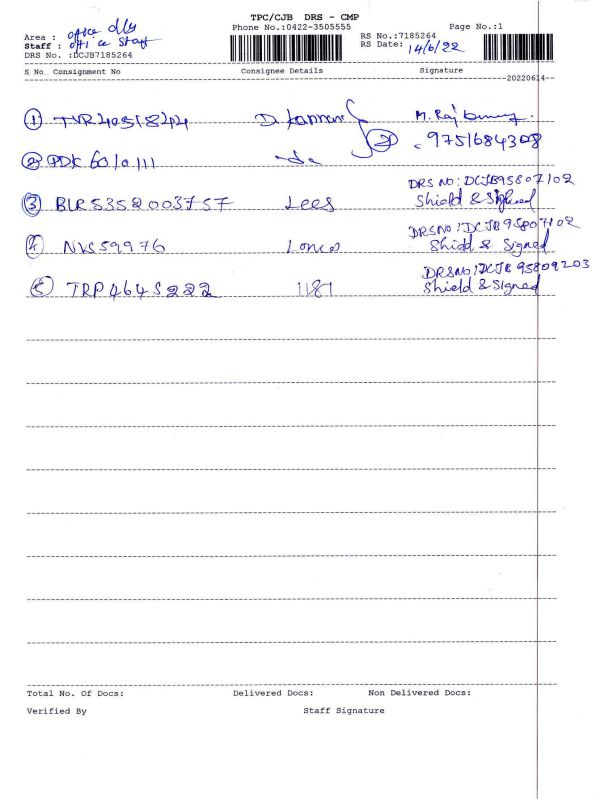 TPC/CJB DRS - CMP
Phone No.:0422-3505555
Page No.:1
Area : office dly
Staff : office staff
DRS No. :DCJB7185264
RS No.:7185264
RS Date: 14/6/22
S.No. Consignment No Consignee Details Signature
20220614
① TVR40518244 D. Kannan M. Raj
② 9751684308
② PDK6010111
③ BLR5352003757 Lees DRS NO: DCJB95807102
Shield & Signed
④ NVS59976 DRSNO: DCJB95807102
Shield & Signed
⑤ TRP4645222 1181 DRSNO: DCJB95809203
Shield & Signed
Total No. Of Docs: Delivered Docs: Non Delivered Docs:
Verified By Staff Signature